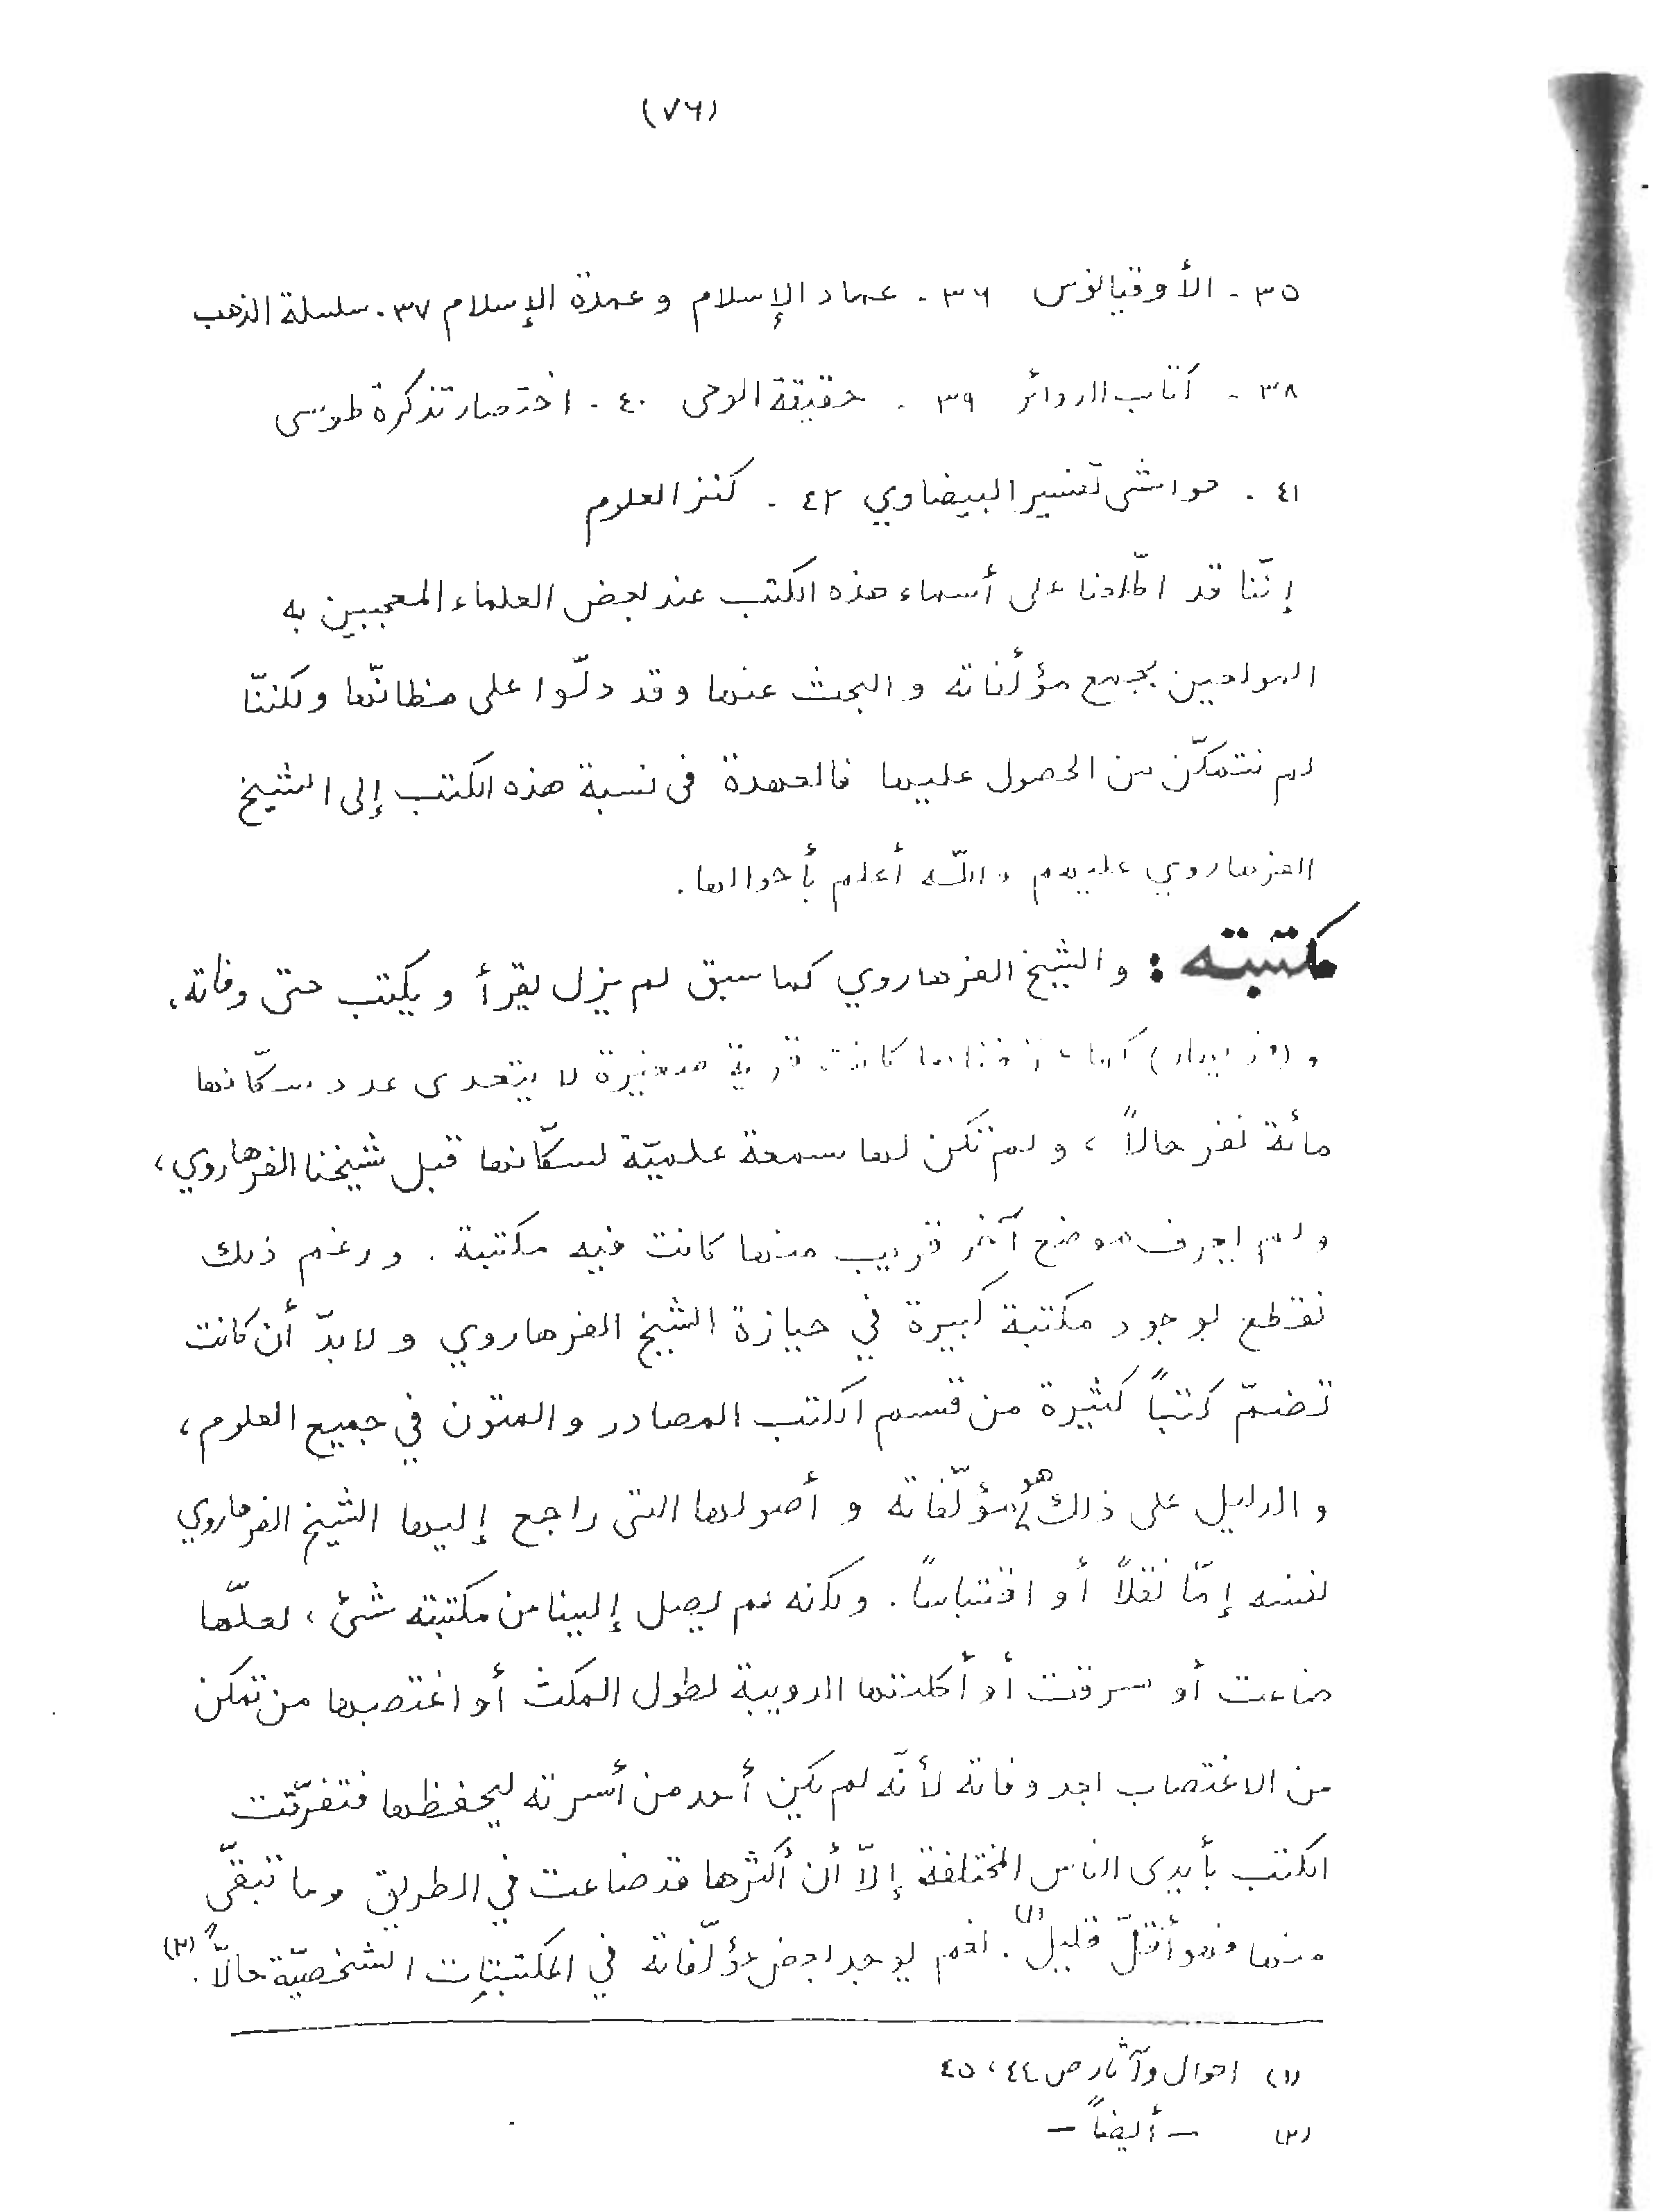 (٧٦)
٣٥ - الأوقيانوس ٣٦ - عماد الإسلام و عمدة الإسلام ٣٧ - سلسلة الذهب
٣٨ - كتاب الدوائر ٣٩ - حقيقة الوحى ٤٠ - اختصار تذكرة طوسى
٤١ - حواشى تفسير البيضاوي ٤٢ - كنز العلوم
إنّنا قد اطّلعنا على أسماء هذه الكتب عند بعض العلماء المعجبين به
المولعين بجمع مؤلفاته و البحث عنها و قد دلّوا على مظانّها و لكننّا
لم نتمكّن من الحصول عليها فالعهدة فى نسبة هذه الكتب إلى الشيخ
الفرهاروي عليهم و اللّه أعلم بأحوالها.
مكتبته : و الشيخ الفرهاروي كما سبق لم يزل يقرأ و يكتب حتىّ وفاته.
و كما كانت قرية صغيرة لا يتعدى عدد سكّانها
مائة نفر حالاً ، و لم تكن لها سمعة علميّة لسكّانها قبل شيخنا الفرهاروي ،
و لم يعرف موضع آخر قريب منها كانت فيه مكتبة . و رغم ذلك
نقطع بوجود مكتبة كبيرة في حيازة الشيخ الفرهاروي و لا بدّ أن كانت
تضمّ كتباً كثيرة من قسم الكتب المصادر و المتون في جميع العلوم ،
و الدليل على ذلك هو مؤلّفاته و أصولها التى راجع إليها الشيخ الفرهاروي
نفسه إمّا نقلاً أو اقتباساً . و لكنه لم يصل إلينا من مكتبته شئ ، لعلّها
ضاعت أو سرقت أو أكلتها الدويبة لطول المكث أو اغتصبها من تمكن
من الاغتصاب بعد وفاته لأنّه لم يكن أحد من أسرته ليحفظها فتفرّقت
الكتب بأيدى الناس المختلفة إلاّ أن أكثرها قد ضاعت في الطريق و ما تبقّى
منها فهو أقلّ قليل (١) . نعم يوجد بعض مؤلّفاته في المكتبات الشخصيّة حالاً . (٢)
(١) احوال و آثار ص ٤٤ ، ٤٥
(٢) - أيضاً -